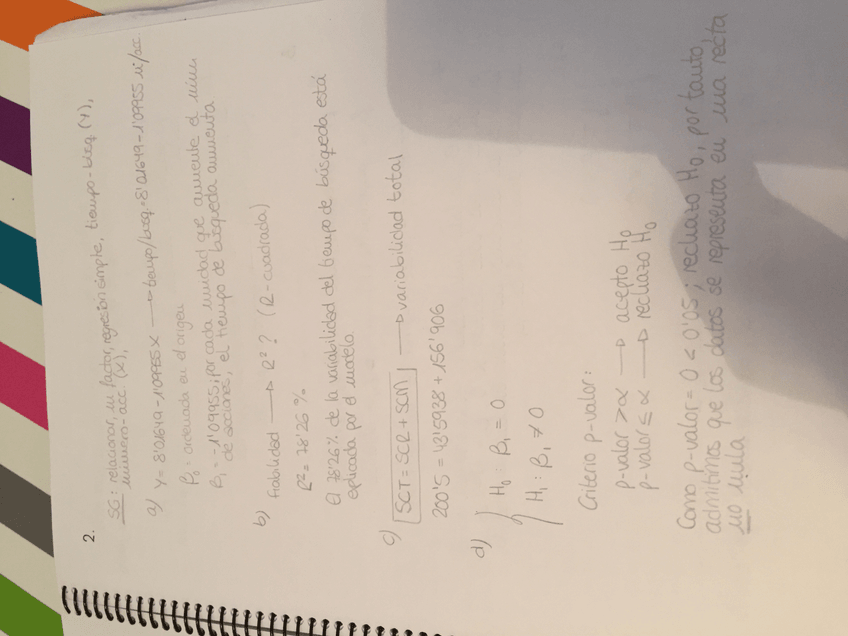 2.
SG: relacionar, un factor, regresión simple, tiempo-busq. (Y),
numero-acc. (X),
a) Y = 8'01649-1'09955X → tiempo/busq.=8'01649-1'09955 n/acc
β₀: ordenada en el origen
β₁ = -1'09955; por cada unidad que aumente el núm
de acciones, el tiempo de búsqueda aumenta
b) Fiabilidad → R²? (R-cuadrada)
R²= 78'26%
El 78'26% de la variabilidad del tiempo de búsqueda está
explicada por el modelo.
c) SCT = SCR + SCM → variabilidad total
200'5 = 43'5938 + 156'906
d) { H₀: β₁ = 0
H₁: β₁ ≠ 0
Criterio p-valor:
p-valor > α → acepto H₀
p-valor ≤ α → rechazo H₀
Como p-valor = 0 < 0'05; rechazo H₀, por tanto,
admitimos que los datos se representa en una recta
no nula